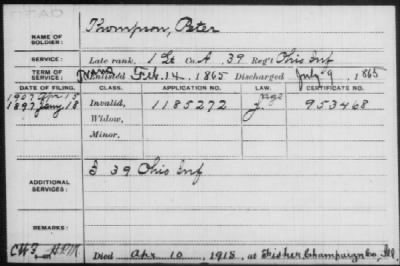 NAME OF SOLDIER: Thompson, Peter
SERVICE: Late rank, 1 Lt Co. A, 39 Reg't Ohio Inf
TERM OF SERVICE: Trans Enlisted Feb. 14, 1865 Discharged July 9, 1865
DATE OF FILING. CLASS. APPLICATION NO. LAW. CERTIFICATE NO.
1907 Apr 15
1897 Jany 18 Invalid, 1185272 953468
Widow,
Minor,
ADDITIONAL SERVICES: I 39 Ohio Inf
REMARKS:
Died Apr 10, 1918, at Fisher Champaign Co, Ill.